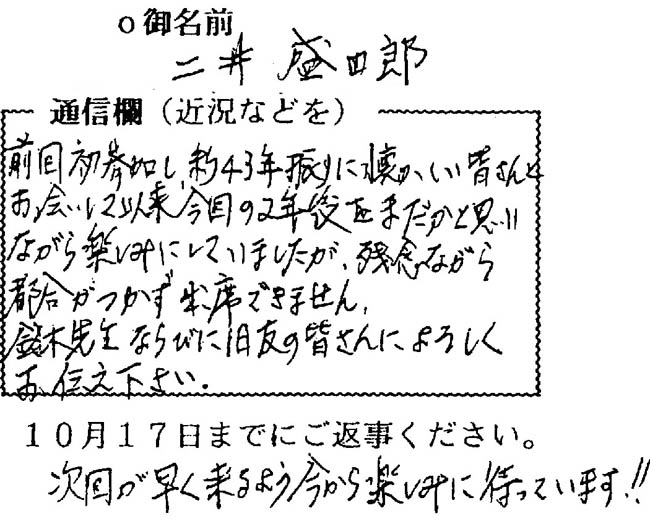 o 御名前
二井 盛四郎
通信欄（近況などを）
前回初参加し、約43年振りに懐かしい皆さんと
お会いして以来今回の2年後をまだかと思い
ながら楽しみにしていましたが、残念ながら
都合がつかず出席できません。
鈴木先生ならびに旧友の皆さんによろしく
お伝え下さい。
１０月１７日までにご返事ください。
次回が早く来るよう今から楽しみに待っています!!